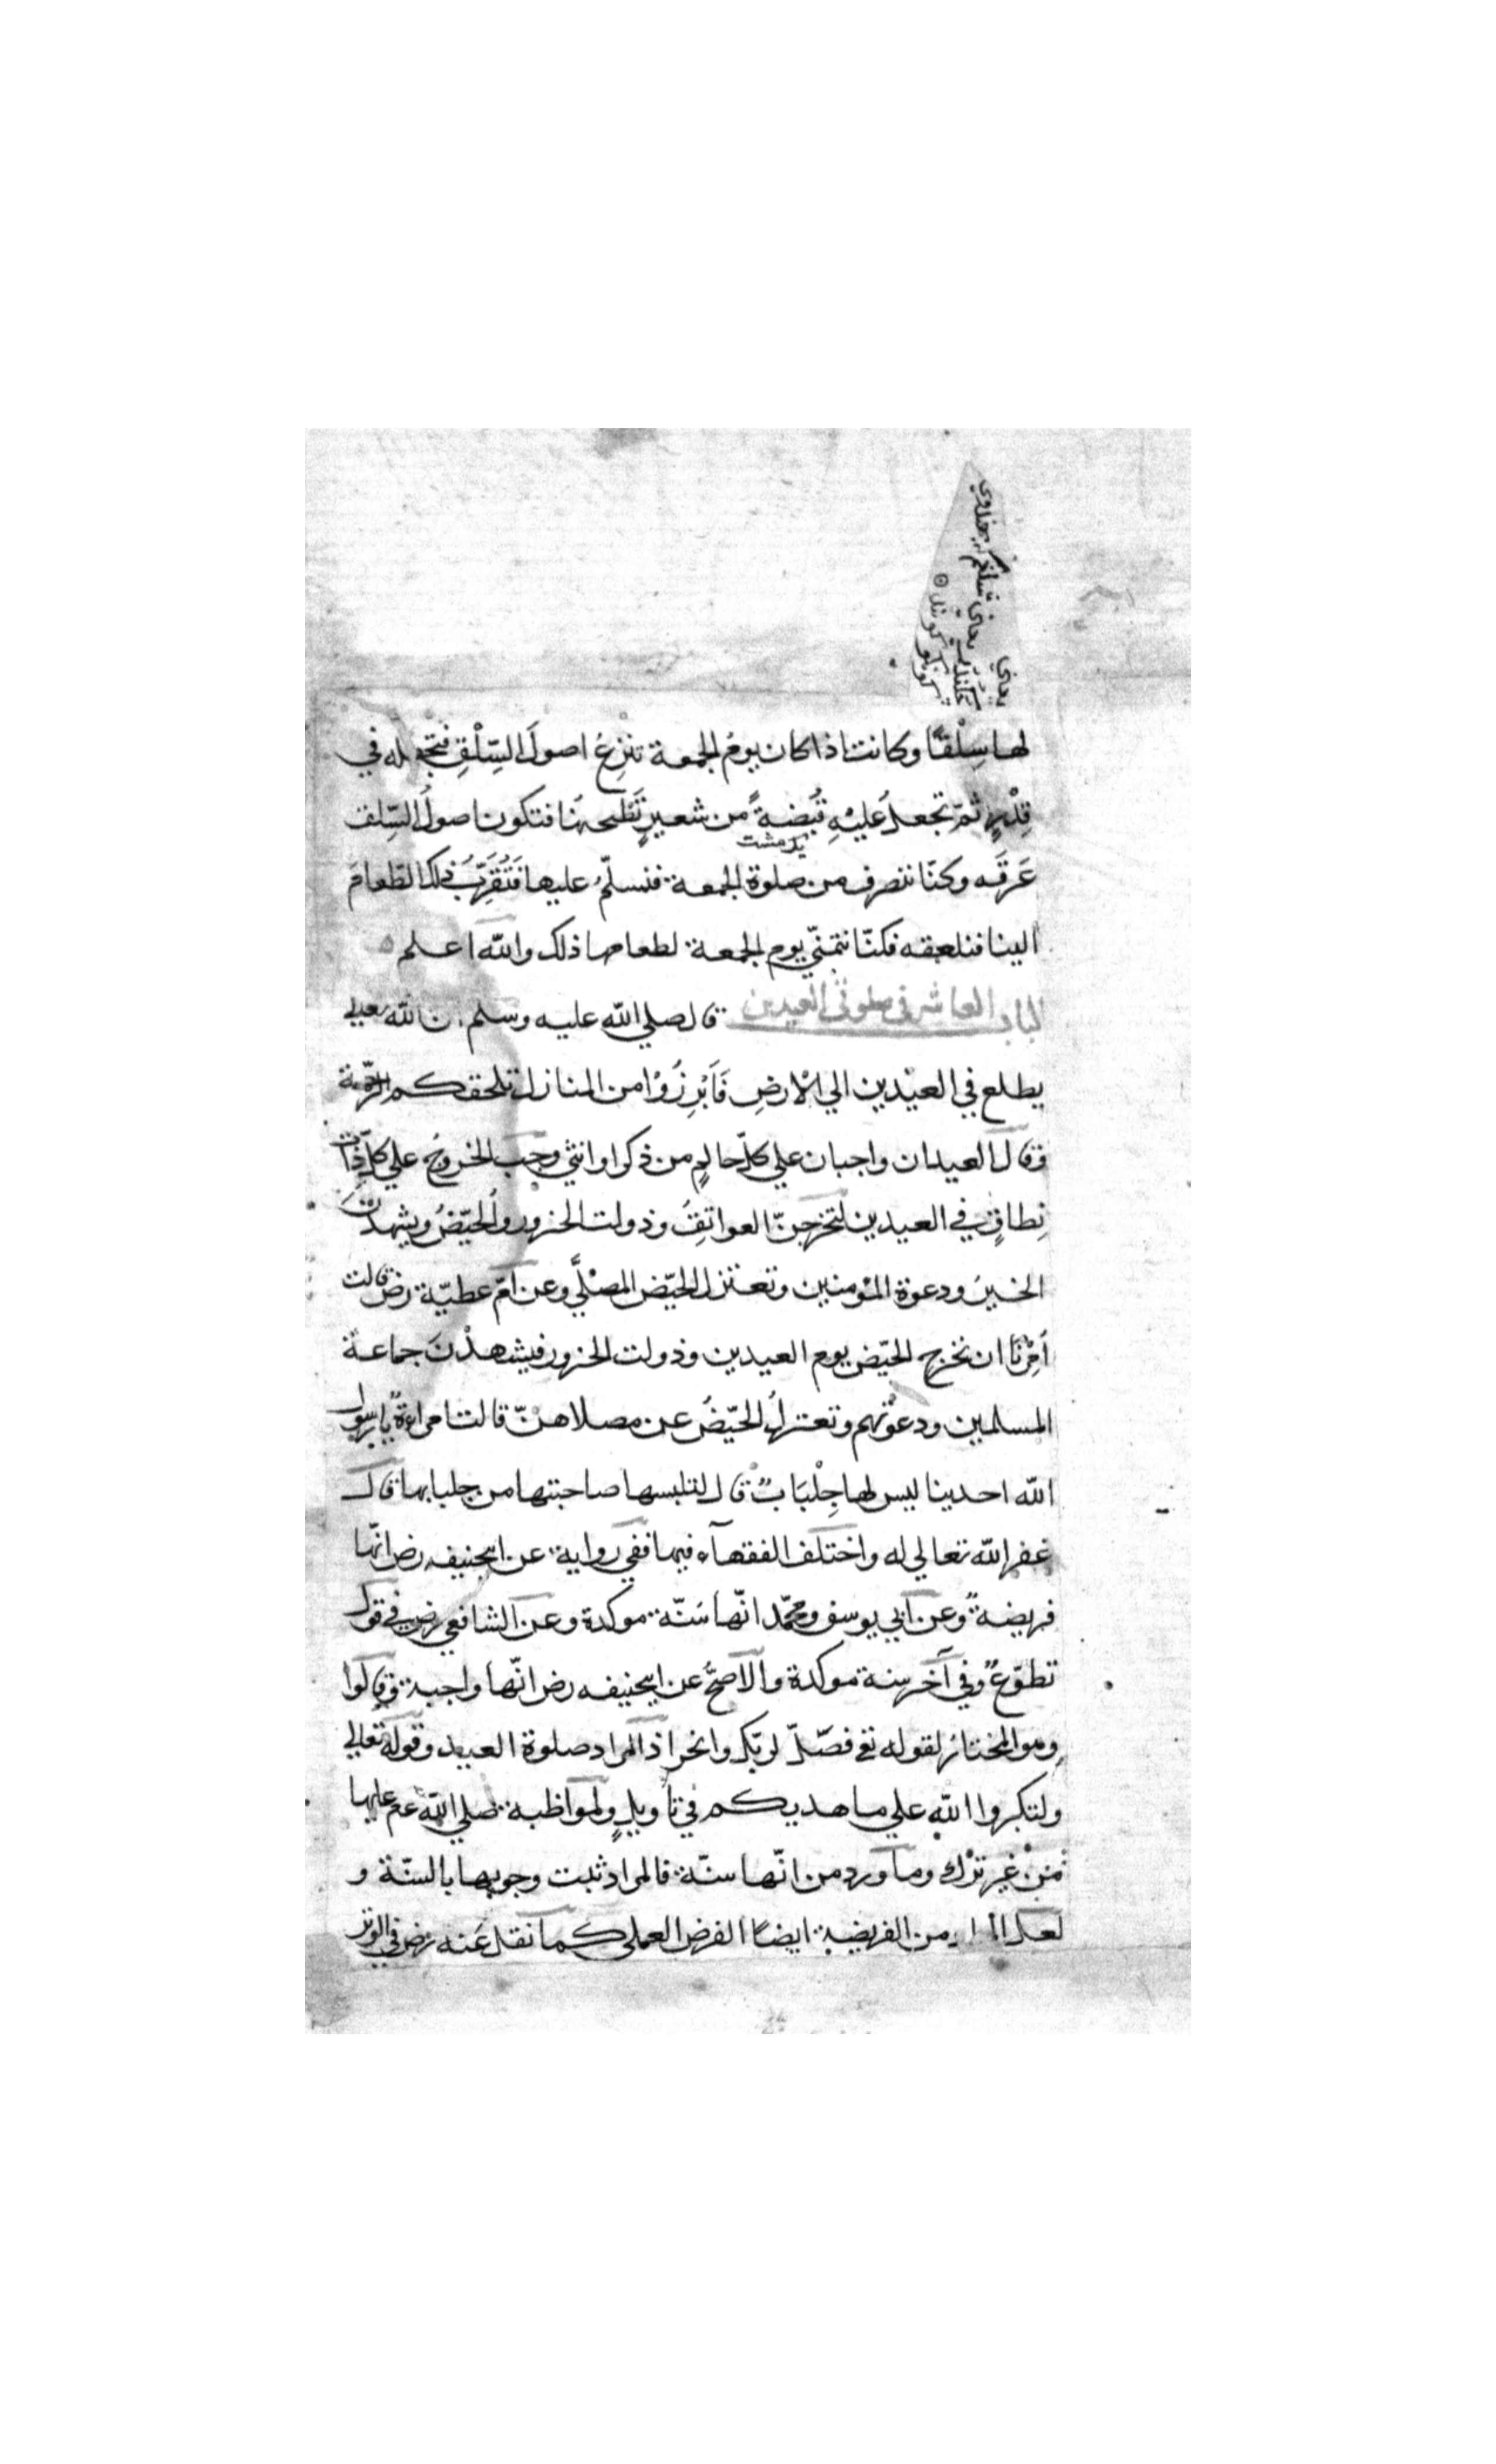 لها سِلْقًا وكانت اذا كان يومُ الجمعة تنزِعُ اصولَ السِّلْقِ فتجعله في
قِدْرٍ ثمّ تجعلُ عليْهِ قُبْضةً من شعيرٍ تَطْبحهُا فتكون اصولُ السِّلق
عَرقَه وكنّا ننصرف من صلوة الجمعة فنسلّمُ عليها فَتُقَرِّبُ ذلك الطّعامَ
الينا فنلعقه فكنّا نتمنّي يوم الجمعة لطعامها ذلك واللّه اعلم
الباب العاشر في صلوتي العيدين قال صلي اللّه عليه وسلم ان اللّه تعالي
يطلع في العيْدين الي الارضِ فَابْرِزُوْا من المنازل تلحقكم الرّحمة
وقال العيدان واجبان علي كلّ حالمٍ من ذكر او انثي وجَب الخروجُ علي كلّ ذات
نِطاقٍ في العيدين لتخرجنّ العواتقُ وذولت الخزور والحيّضُ ويشهدْنَ
الخيرَ ودعوة المؤمنين وتعتزل الحيّض المصلّي وعن امّ عطيّة رض قالت
اُمِرْنَا ان نخرج الحيّض يوم العيدين وذولت الخزور فيشهدْنَ جماعة
المسلمين ودعوتهم وتعتزلُ الحيّضُ عن مصلاهنّ قالت امراءةٌ يا رسول
اللّه احدينا ليس لها جِلْبَابٌ قال لتلبسها صاحبتها من جلبابها قال
غفر اللّه تعالي له واختلف الفقهآء فيها ففي رواية عن ابيحنيفه رض انّها
فريضةٌ وعن ابي يوسف ومحمّد انّها سَنّة موكدة وعن الشافعي رض في قول
تطوّعٌ وفي آخر سنة موكدة والاصحُّ عن ابيحنيفه رض انّها واجبة وقالوا
وهو المختارُ لقوله تع فصلّ لربّك وانحر اذ المراد صلوة العيد وقوله تعالي
ولتكبروا اللّه علي ما هديكم في تأويلٍ ولمواظبة صلي اللّه عم عليها
مَنْ غير ترْك وما ورد من انّها سنّة فالمراد ثبت وجوبها بالسنّة و
لعل من الفريضة ايضًا الفرض العملي كما نقل عَنه رض في الوتر